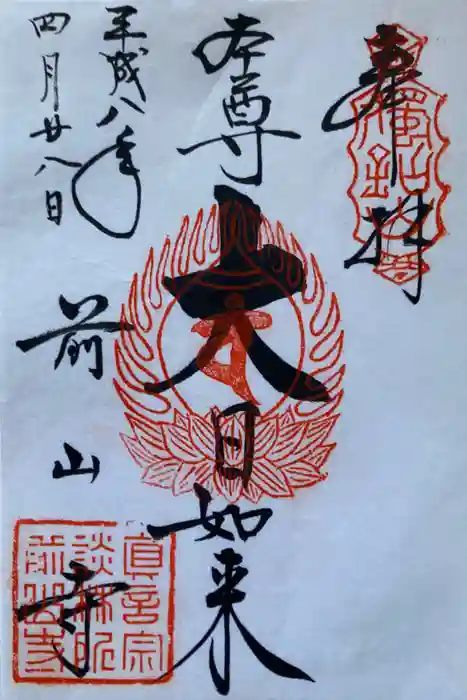 奉拝
本尊
大日如来
平成八年
四月廿八日
前山寺
真言宗
談
前山寺